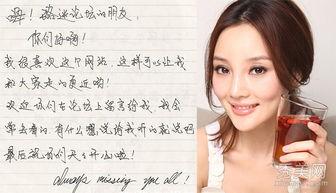 嗨！路迷论坛的朋友，
你们好啊！
我很喜欢这个网站，这样可以让我
和大家走的更近哟！
欢迎你们在论坛上留言给我，我会
常去看的，有什么想说给我听的就说吧
最后祝你们天天开心啦！
always missing you all！
秀美网